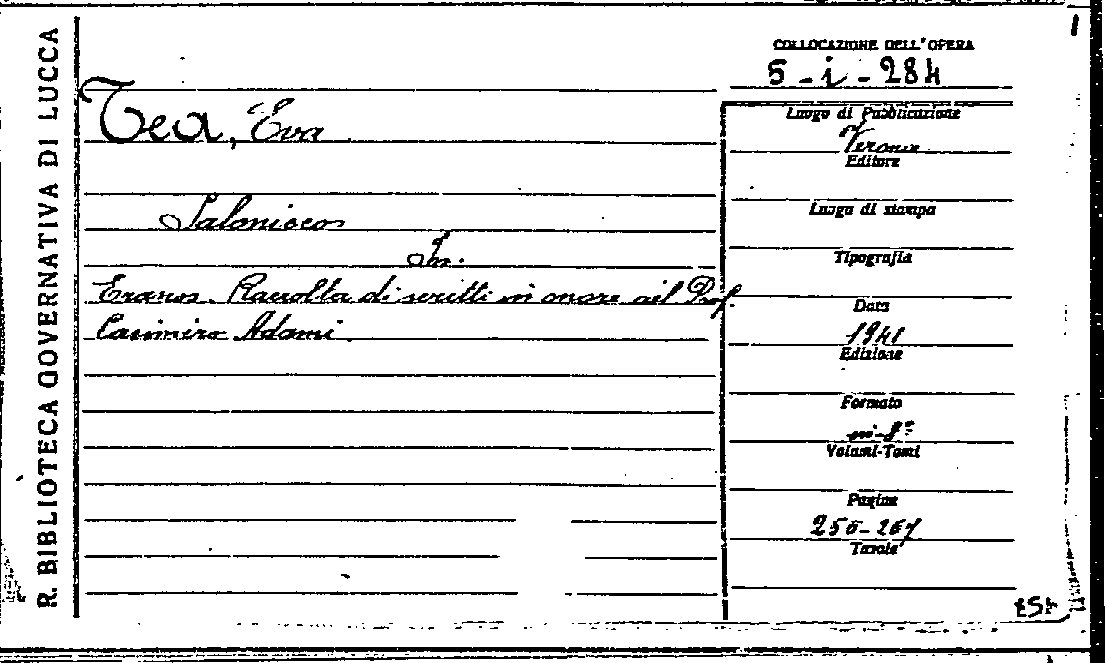 R. BIBLIOTECA GOVERNATIVA DI LUCCA
COLLOCAZIONE DELL'OPERA
5 - i - 284
Tea, Eva
Salonicco
In:
Eranos. Raccolta di scritti in onore del Prof.
Casimiro Adami.
Luogo di Pubblicazione
Verona
Editore
Luogo di stampa
Tipografia
Data
1941
Edizione
Formato
in-8°
Volumi-Tomi
Pagine
256-267
Tavole